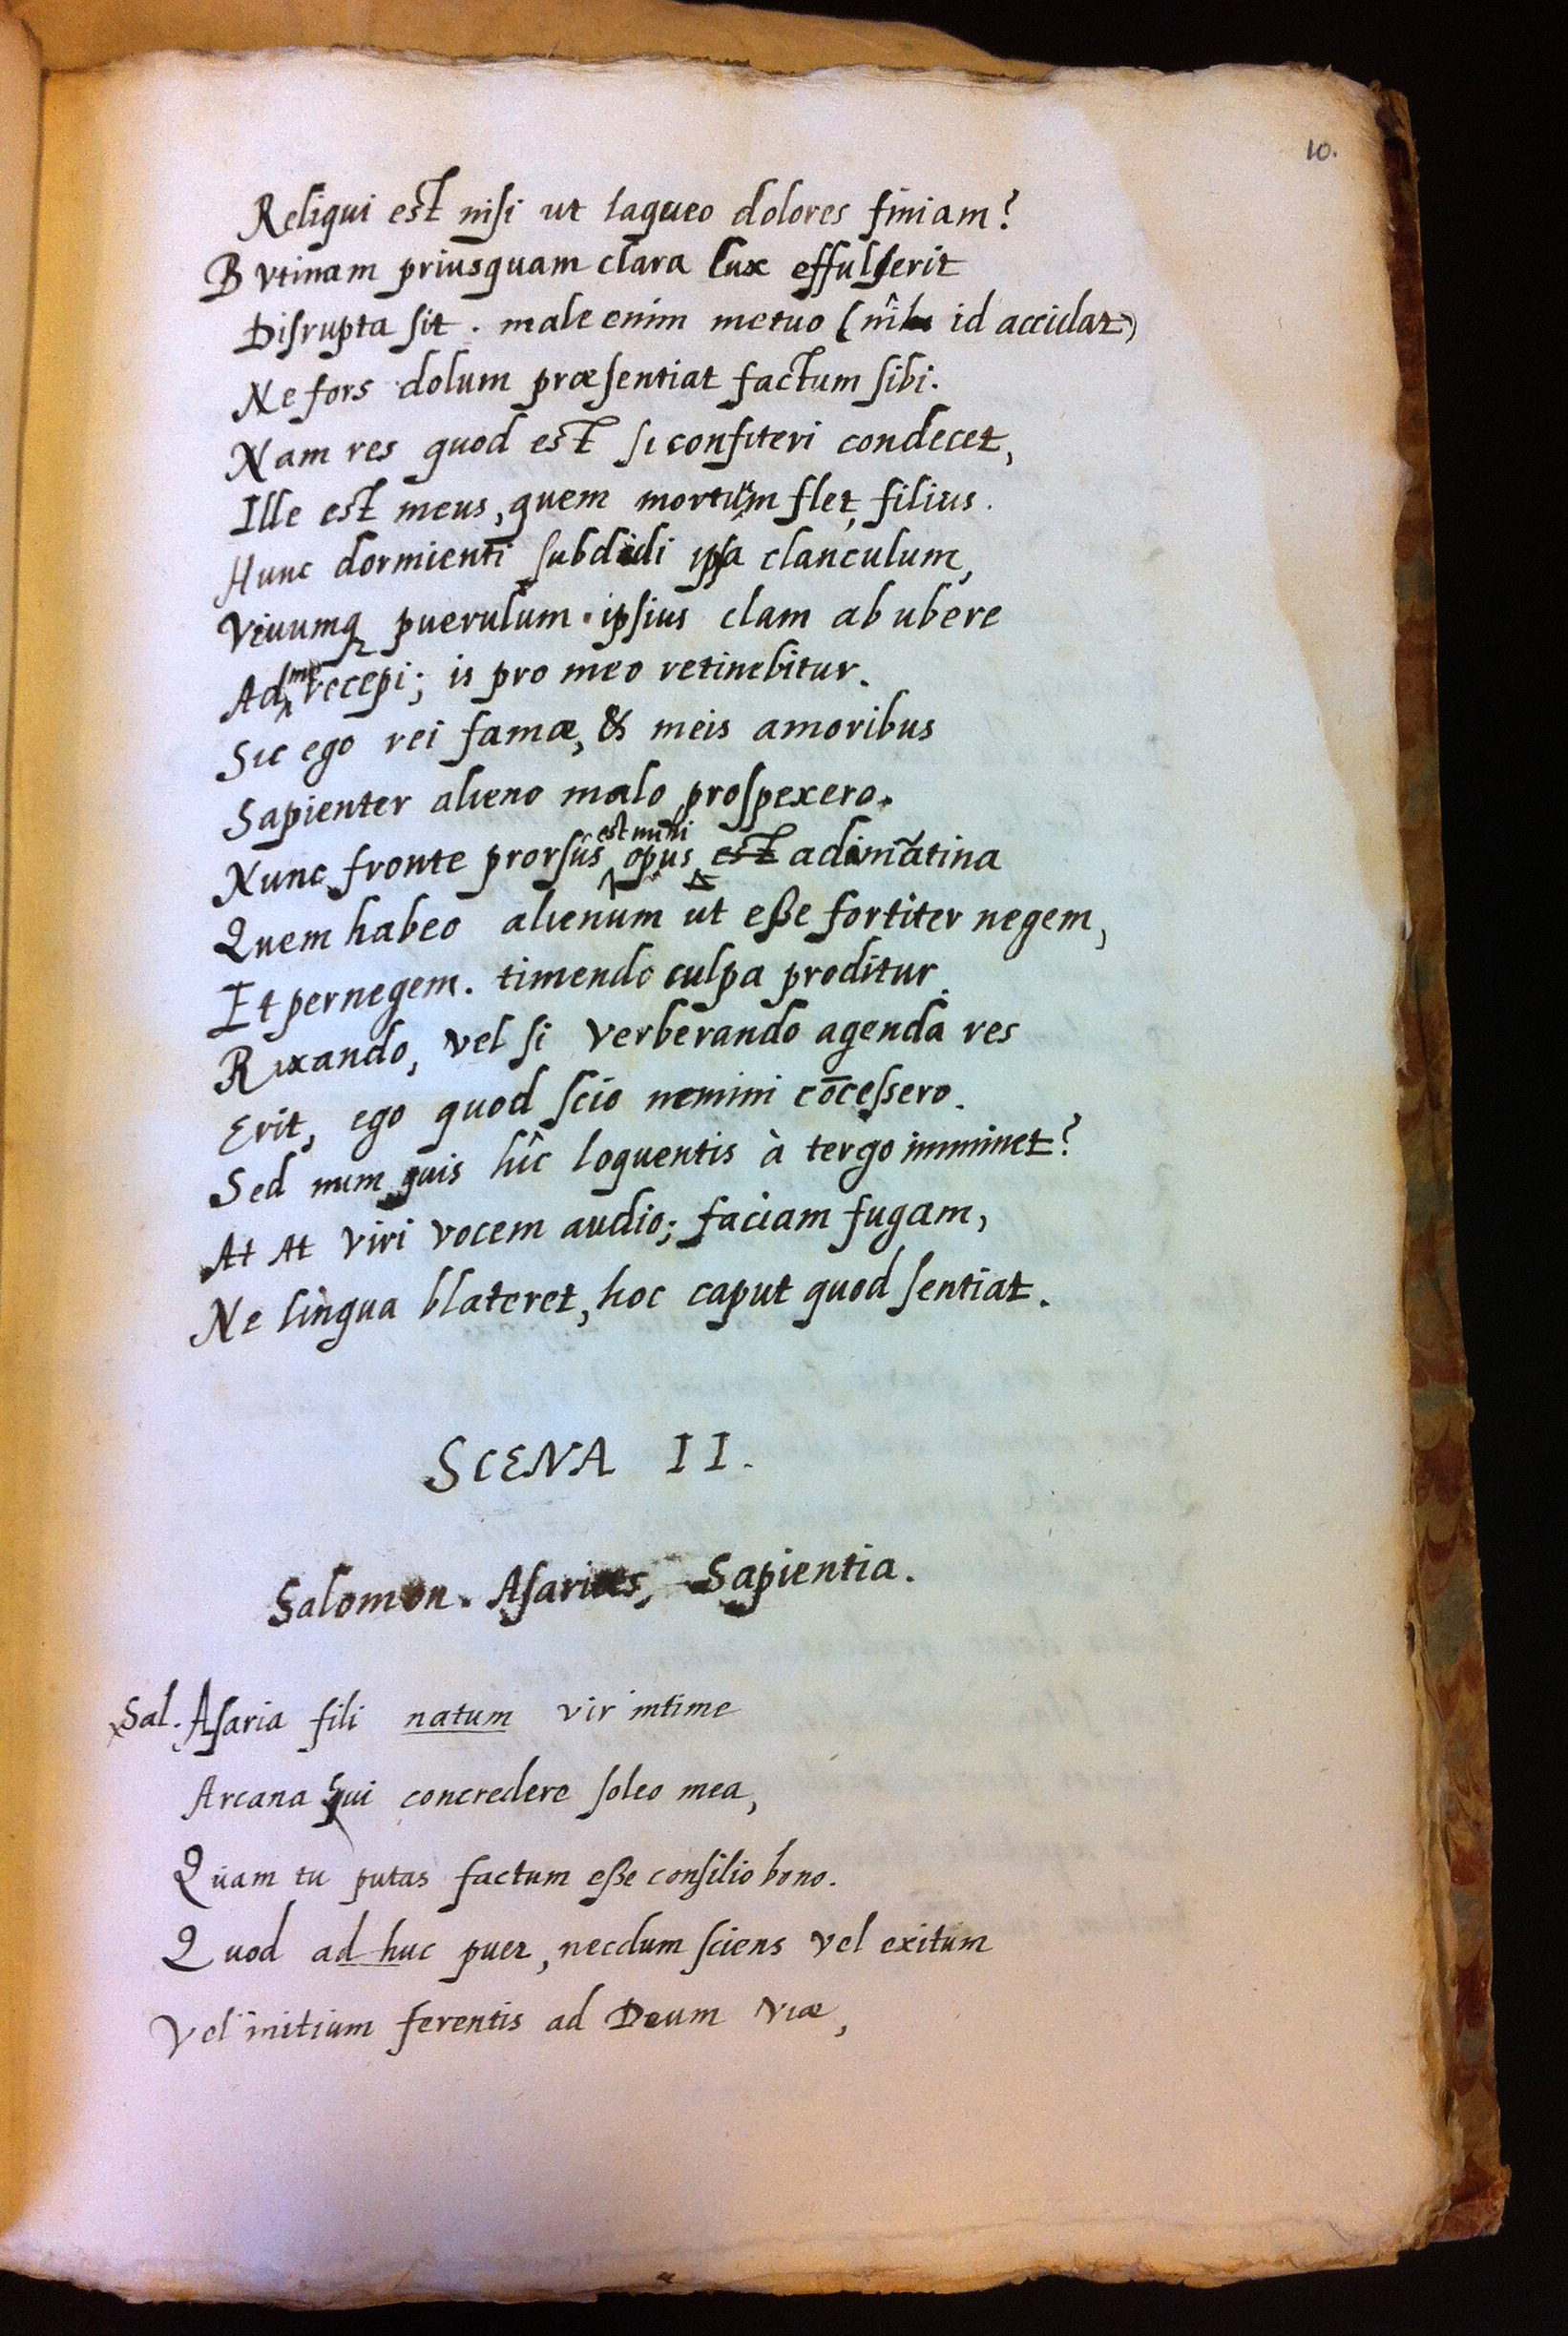 10.
Religui est nisi ut laqueo dolores finiam?
B vtinam priusquam clara lux effulserit
Disrupta sit. male enim metuo ( id accidat)
Ne fors dolum præsentiat factum sibi.
Nam res quod est si confiteri condecet,
Ille est meus, quem mortuum flet, filius.
Hunc dormienti subdidi ipsa clanculum,
Viuumq puerulum ipsius clam ab ubere
Ad me recepi; is pro meo retinebitur.
Sic ego rei famæ, & meis amoribus
Sapienter alieno malo prospexero.
Nunc fronte prorsùs est mihi opus est adimãtina
Quem habeo alienum ut eße fortiter negem,
Et pernegem. timendo culpa proditur.
Rixando, vel si verberando agenda res
Erit, ego quod scio nemini cõcessero.
Sed num quis hîc loquentis à tergo imminet?
At At viri vocem audio; faciam fugam,
Ne lingua blateret, hoc caput quod sentiat.
SCENA II.
Salomon. Asaries, Sapientia.
Sal. Asaria fili natum vir intime
Arcana qui concredere soleo mea,
Quam tu putas factum eße consilio bono.
Quod ad huc puer, necdum sciens vel exitum
Vel initium ferentis ad Deum viæ,